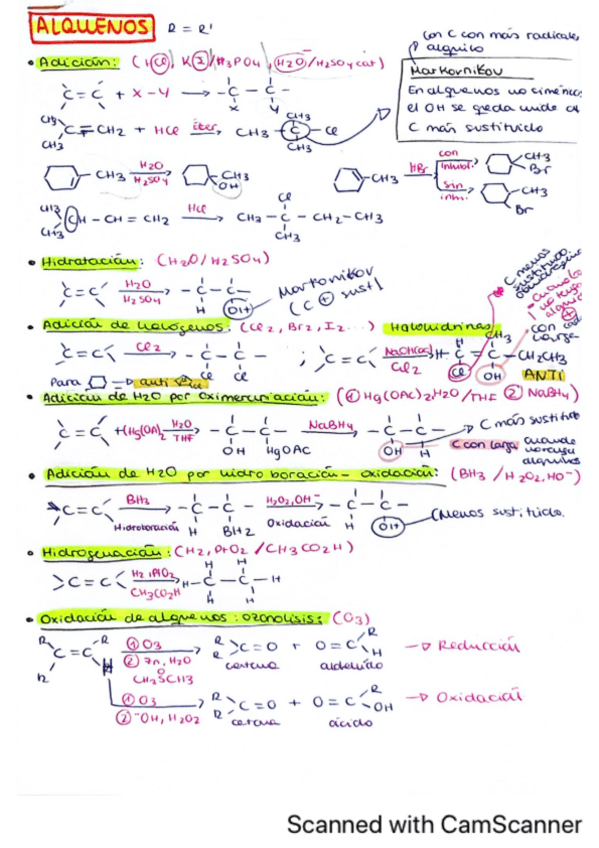 ALQUENOS R = R'
con C con más radicales
alquilo
• Adición: (HCl), KI/H3PO4, H2O/H2SO4 cat)
Markovnikov
En alquenos no siméricos
el OH se queda unido al
C más sustituido
C=C + X-Y → -C-C-
X Y
CH3
CH3 C=CH2 + HCl Éter, CH3-C-Cl
CH3 CH3
-CH3 H2O H2SO4 CH3 OH
-CH3 HBr con inhibi. CH3 Br
sin inh. CH3 Br
CH3 CH-CH=CH2 HCl CH3-C-CH2-CH3
CH3 Cl CH3
• Hidratación: (H2O/H2SO4)
C=C H2O H2SO4 -C-C- H OH
Markovnikov
(C + sust)
C menos
sustituido
• Adición de halógenos: (Cl2, Br2, I2...) Halohidrinas
con carga
C=C Cl2 -C-C- Cl Cl ; C=C NaOH(ac) Cl2 H-C-C-CH2CH3
CH3 Cl OH ANTI
Para → anti
• Adición de H2O por Oximercuriación: (① Hg(OAc)2 H2O/THF ② NaBH4)
C=C +(Hg(OA)2 H2O THF -C-C- OH HgOAC NaBH4 -C-C- OH H
C más sustituido
C con carga cuando no haya alquinos
• Adición de H2O por hidroboración-oxidación: (BH3/H2O2, HO-)
C=C BH3 Hidroboración -C-C- H BH2 H2O2, OH- Oxidación -C-C- H OH
(Menos sustituido.
• Hidrogenación: (H2, PtO2/CH3CO2H)
C=C H2, PtO2 CH3CO2H H-C-C-H
H H
• Oxidación de alquenos: ozonólisis: (O3)
R R C=C R H ① O3 R R C=O + O=C R H → Reducción
② Zn, H2O cetona aldehído
CH3SCH3
① O3 R R C=O + O=C R OH → Oxidación
② -OH, H2O2 cetona ácido
Scanned with CamScanner